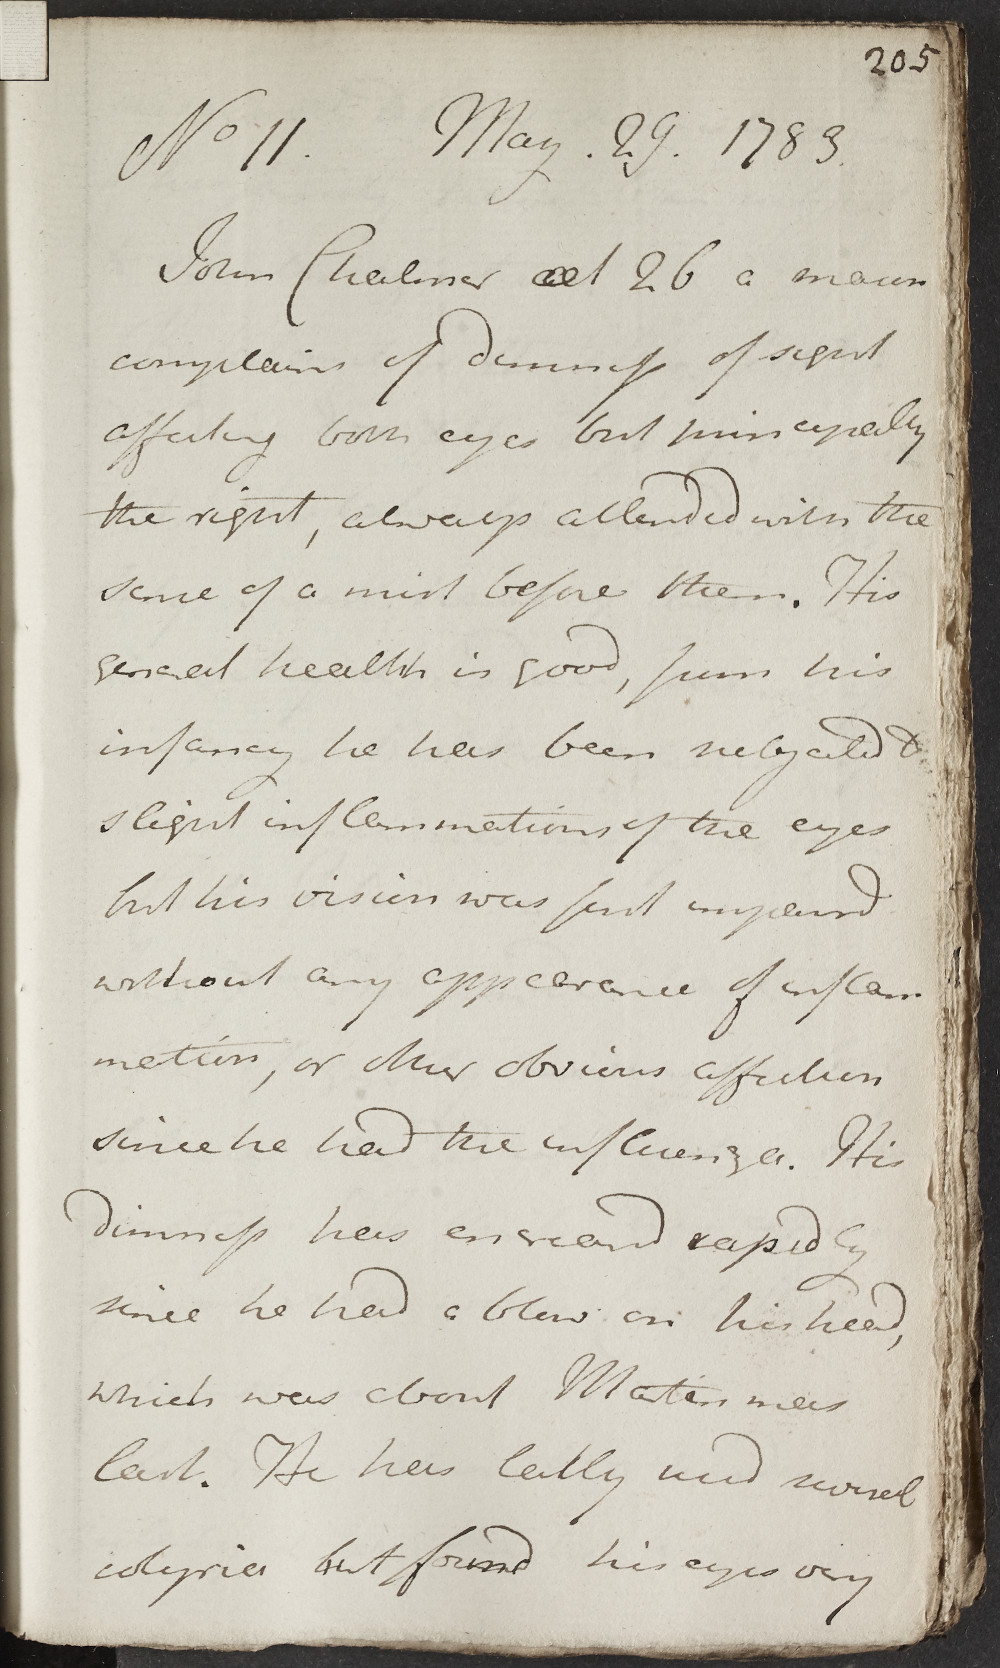 205
No 11. May. 29. 1783.
John Chalmer aet 26 a mason
complains of dimness of sight
affecting both eyes but principally
the right, always attended with the
sense of a mist before them. His
general health is good, from his
infancy he has been subjected to
slight inflammations of the eyes
but his vision was first impaird
without any appearance of inflam
mation, or other obvious affection
since he had the influenza. His
dimness has encreasd rapidly
since he had a blow on his head,
which was about Martin mas
last. He has lattly used several
colyria but found his eyes very